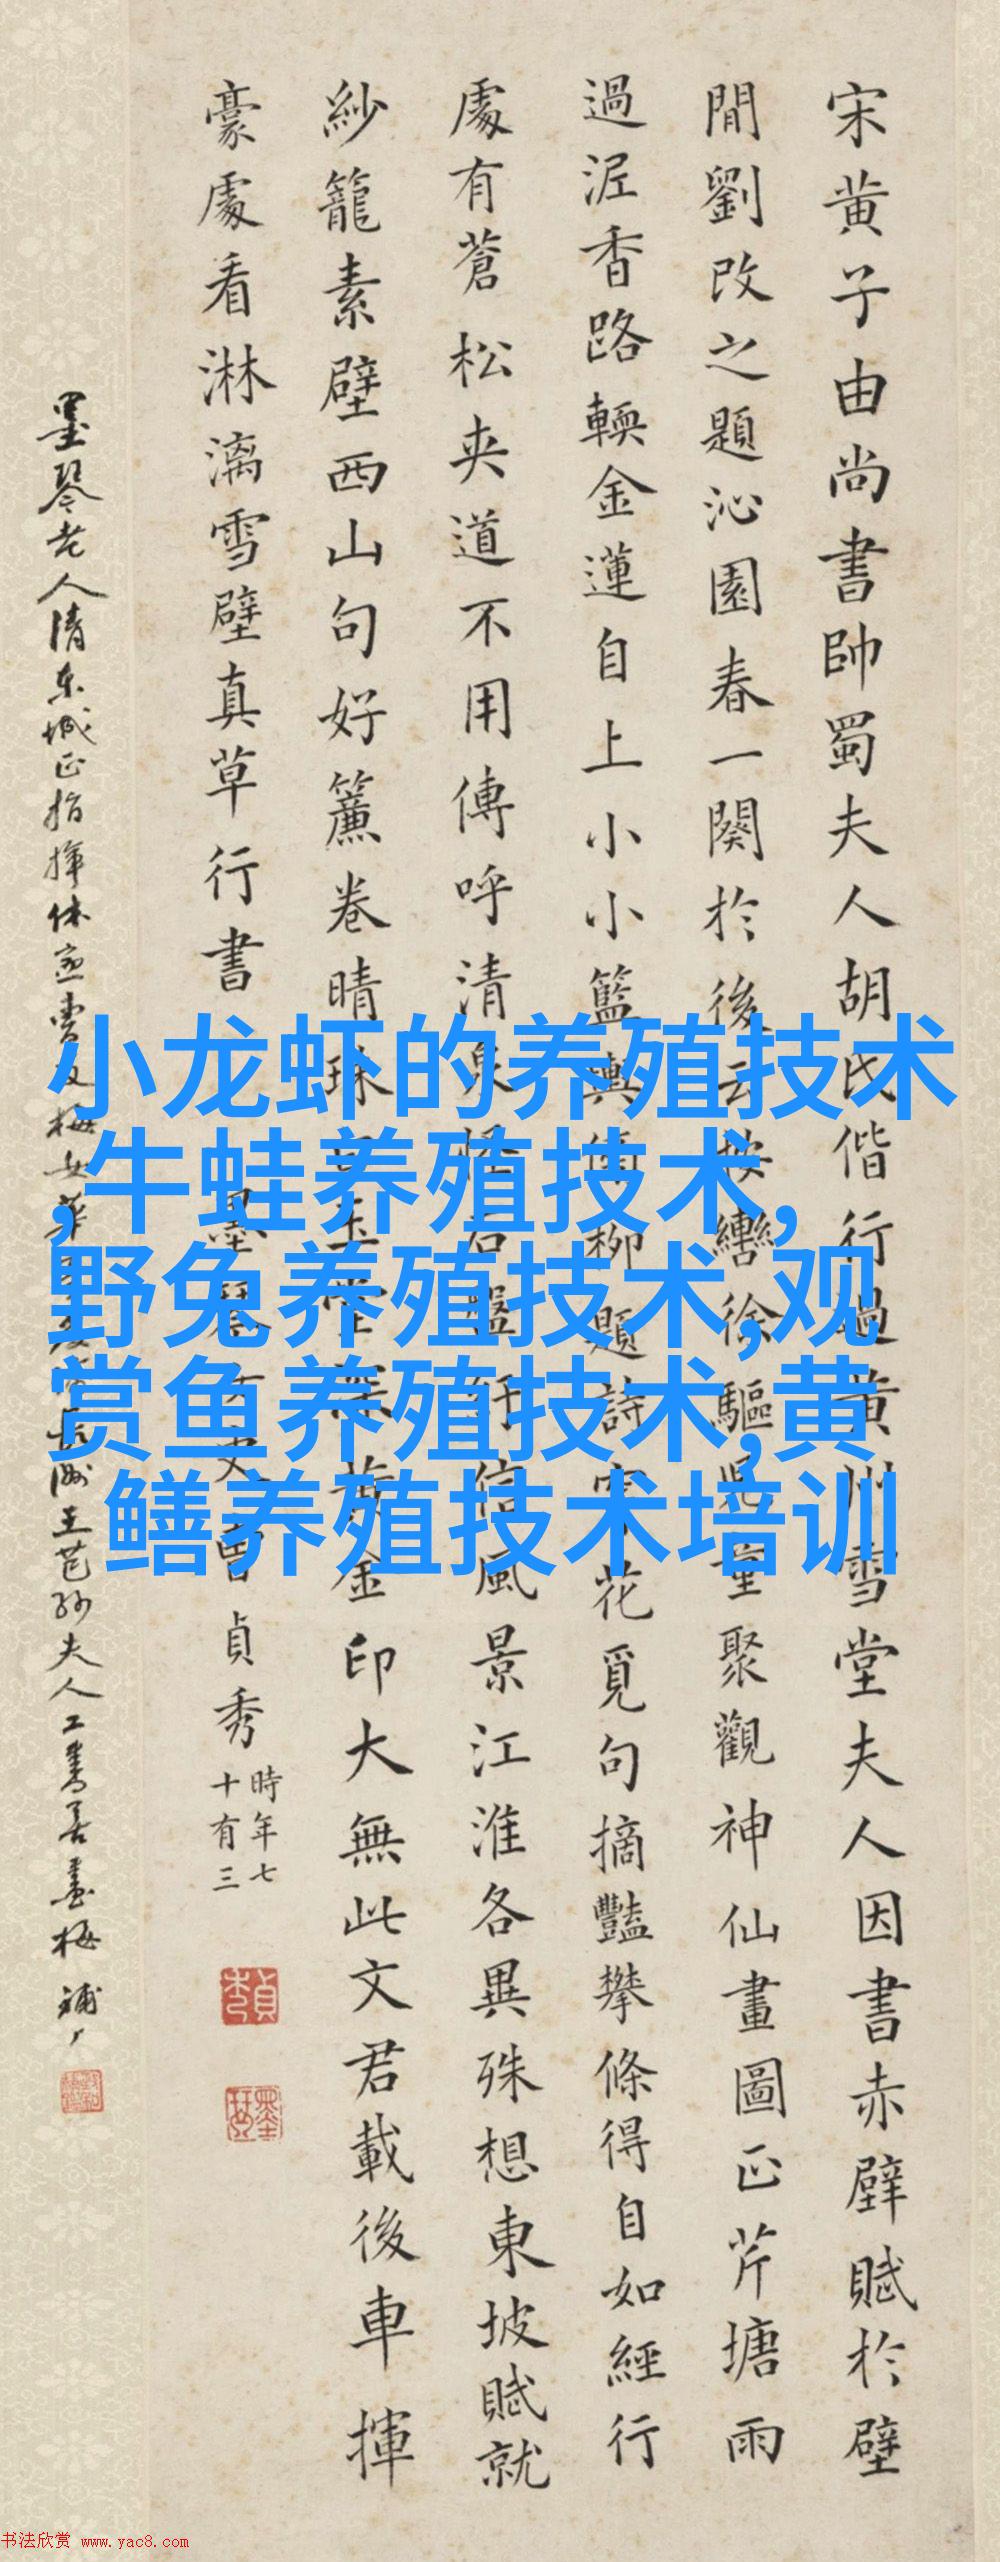 宋黄子由尚書帥蜀夫人胡氏偕行過黄州雪堂夫人因書赤壁賦於壁
間劉改之題沁園春一闋於後云按轡徐驅兒童聚觀神仙畫圖正芹塘雨
過泥香路輭金蓮自上小小籃輿傍柳題詩穿花覓句摘豔攀條得自如經行
處有蒼松夾道不用傳呼清泉怪石盤紆信風景江淮各異殊想東坡賦就
紗籠素壁西山句好簾卷晴珠白玉堂深黄金印大無此文君載後車揮
豪處看淋漓雪壁真草行書
墨琴女史曹貞秀
時年七
十有三
貞秀
墨琴
墨琴老人清東城正指揮休寧 王芑孙夫人工書善畫梅
小龙虾的养殖技术
,牛蛙养殖技术,
野兔养殖技术,观
赏鱼养殖技术,黄
鳝养殖技术培训
书法欣赏 www.yac8.com